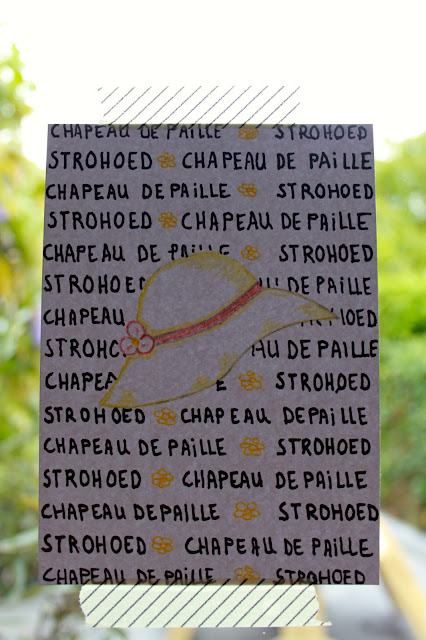 CHAPEAU DE PAILLE STROHOED
STROHOED CHAPEAU DE PAILLE
CHAPEAU DE PAILLE STROHOED
STROHOED CHAPEAU DE PAILLE
CHAPEAU DE PAILLE STROHOED
STROHOED DE PAILLE
CHAPEAU
STROHO AU DE PAILLE
CHAPEA E STROHOED
STROHOED CHAPEAU DE PAILLE
CHAPEAU DE PAILLE STROHOED
STROHOED CHAPEAU DE PAILLE
CHAPEAU DE PAILLE STROHOED
STROHOED CHAPEAU DE PAILLE
CHAPEAU DE PAILLE STROHOED